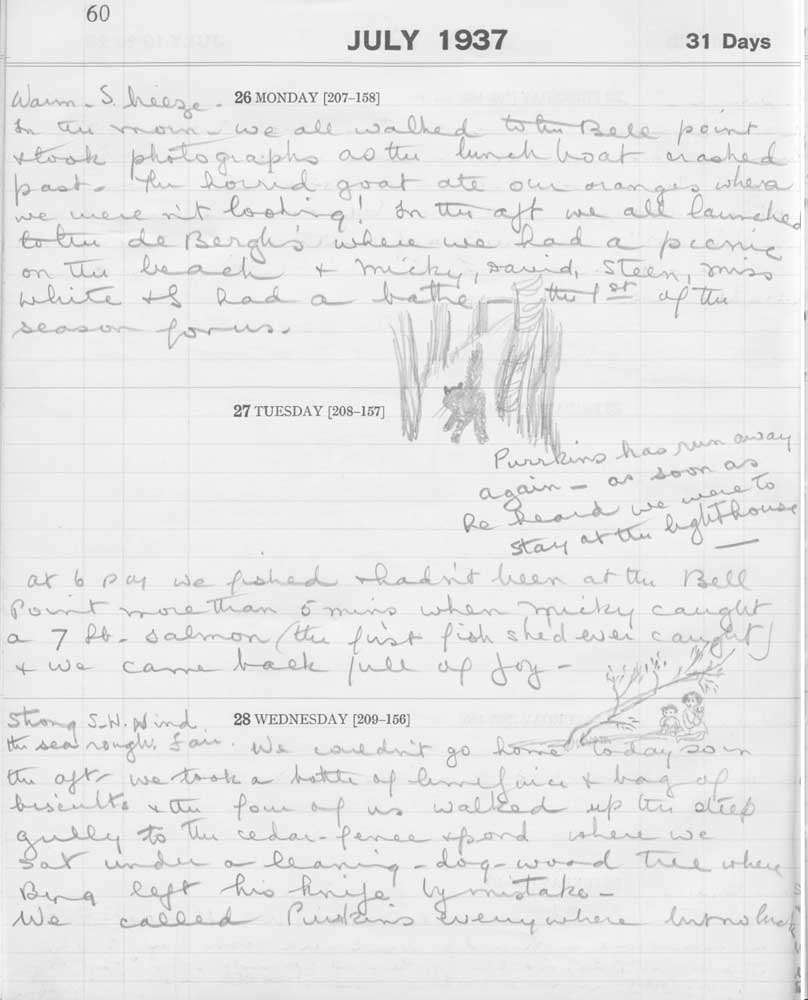 60
JULY 1937 31 Days
Warm - S. breeze. 26 MONDAY [207–158]
In the morn - we all walked to the Bell point
& took photographs as the lunch boat crashed
past - The horrid goat ate our oranges when
we weren't looking! In the aft we all launched
to the de Bergh's where we had a picnic
on the beach & Micky, David, Steen, Miss
White & I had a bathe - the 1st of the
season for us.
27 TUESDAY [208–157]
Purrkins has run away
again - as soon as
he heard we were to
stay at the lighthouse
at 6 we fished & hadn't been at the Bell
Point more than 5 mins when Micky caught
a 7 lb. salmon (the first fish shed ever caught)
& we came back full of joy -
Strong S.W. Wind 28 WEDNESDAY [209–156]
the sea rough. Fair. We couldn't go home today so in
the aft - we took a bottle of lime juice & bag of
biscuits & the four of us walked up the steep
gully to the cedar-fence & pond where we
sat under a leaning - dog-wood tree where
left his knife by mistake -
We called Purrkins everywhere but no luck